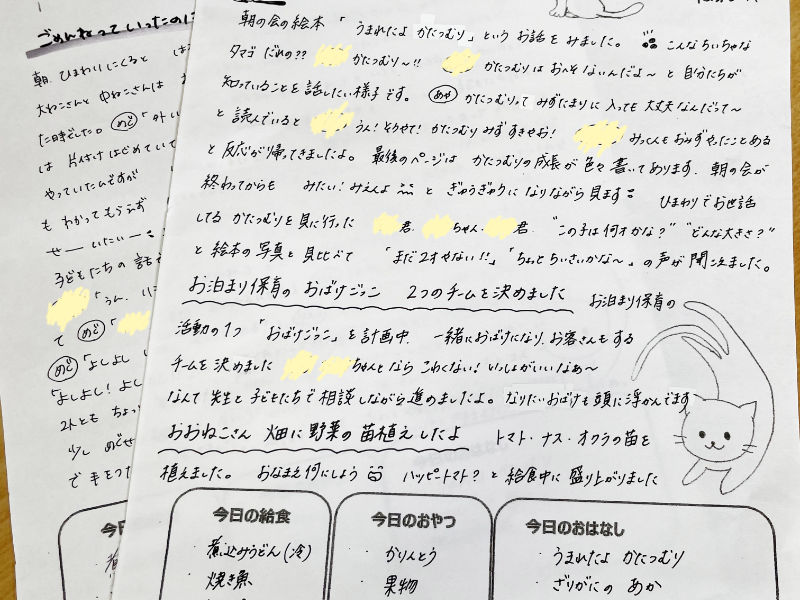 ごめんねっていったのに
朝、ひまわりにくると
大ねこさんと 中ねこさんは
た時でした。 めぐ 「外い
は 片付けはじめていて
やっていたんですが
も わかってもらえず
せー いたいー
子どもたちの 話を
「うん、
て めぐ 「
めぐ 「よしよし
「よしよし! よし
2人とも ちょっ
少し めぐせ
で 手をつ
今日
煮
朝の会の絵本 「うまれたよ かたつむり」という お話を みました。 こんなちいちゃな
タマゴ だれの?? かたつむり~!! かたつむりは おへそ ないんだよ~ と 自分たちが
知っていることを 話したい様子です。 あや かたつむりって みずたまりに 入っても 大丈夫なんだって~
と 読んでいると うん! そりゃそ! かたつむり みずすきやお! みっくんも おみずやったことある
と 反応が帰ってきましたよ。 最後のページは かたつむりの成長が 色々 書いてあります。 朝の会が
終わってからも みたい! みえんよ と ぎゅうぎゅうに なりながら 見ます ひまわりでお世話
してる かたつむりを 見に行った 君、 ちゃん・ 君、 “この子は 何才かな?” “どんな大きさ?”
と 絵本の写真と 見比べて 「まだ2才やない!!」 「ちょっとちいさいかな~」 の声が 聞こえました。
お泊まり保育の おばけごっこ 2つのチームを決めました お泊まり保育の
活動の1つ 「おばけごっこ」を 計画中。 一緒におばけになり、お客さんもする
チームを 決めました ちゃんとなら こわくない! いっしょがいいなあ~
なんて 先生と 子どもたちで 相談しながら 進めましたよ。 なりたいおばけも 頭に 浮かんでます
おおねこさん 畑に 野菜の 苗植えしたよ トマト・ナス・オクラの苗を
植えました。 おなまえ何にしよう ハッピートマト? と 給食中に 盛り上がりました
今日の給食 今日のおやつ 今日のおはなし
・煮込みうどん(冷) ・かりんとう ・うまれたよ かたつむり
・焼き魚 ・果物 ・ざりがにの あか